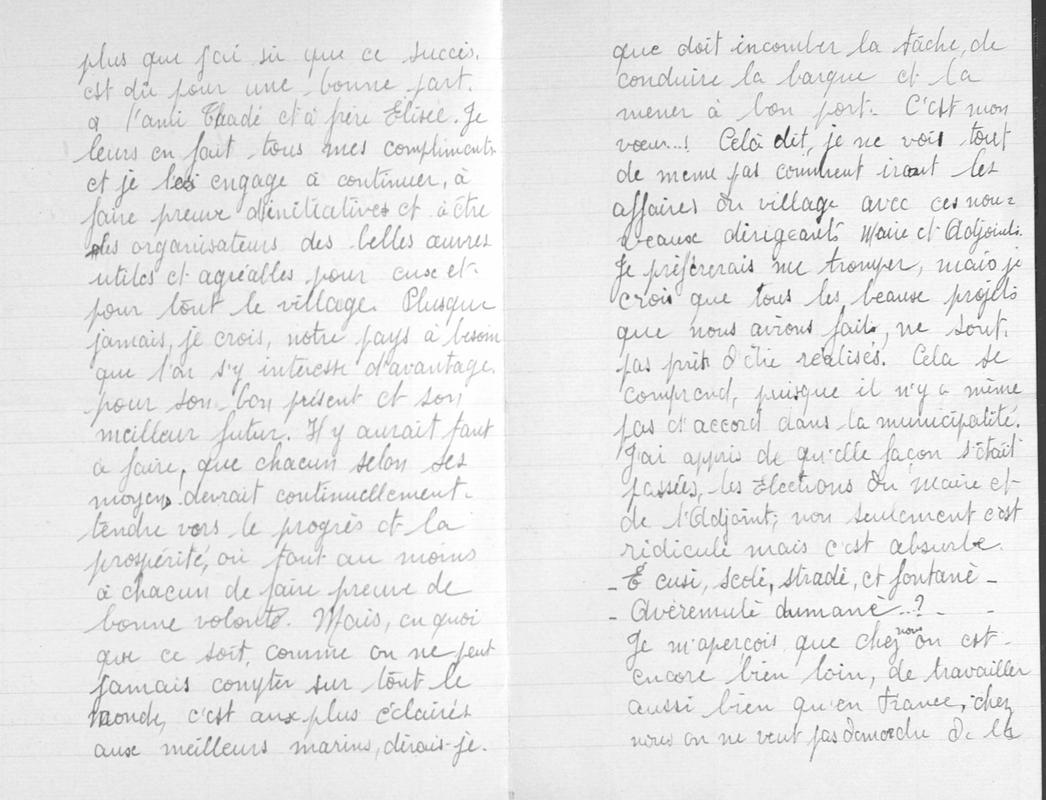 plus que j'ai su que ce succès.
est dû pour une bonne part.
a l'ami Thadé et à frère Elisée. Je
leurs en fait tous mes compliments
et je les engage à continuer, à
faire preuve d'initiatives et à être
des organisateurs des belles œuvres
utiles et agréables pour eux et
pour tout le village. Plusque
jamais, je crois, notre pays à besoin
que l'on s'y intéresse d'avantage.
pour son bon présent et son
meilleur futur. Il y aurait tant
à faire, que chacun selon ses
moyens devrait continuellement.
tendre vers le progrès et la
prospérité, ou tant au moins
à chacun de faire preuve de
bonne volonté. Mais, en quoi
que ce soit, comme on ne peut
jamais compter sur tout le
monde, c'est aux plus éclairés
aux meilleurs marins, dirais-je.
que doit incomber la tâche, de
conduire la barque et la
mener à bon port. C'est mon
vœu...! Celà dit, je ne vois tout
de meme pas comment iront les
affaires du village avec ces nou=
veaux dirigeants Maire et Adjoints.
Je préfererais me tromper, mais je
crois que tous les beaux projets
que nous avions faits, ne sont.
pas près d'être réalisés. Cela se
comprend, puisque il n'y a même
pas d'accord dans la municipalité.
J'ai appris de qu'elle façon s'était
passées, les Elections du Maire et
de l'Adjoint; non seulement c'est
ridicule mais c'est absurbe.
- E cusi, scole, strade, et fontane -
- Averemule dumane...? - -
Je m'aperçois que chez nous on est
encore bien loin, de travailler
aussi bien qu'en France, chez
nous on ne veut pas démordre de la